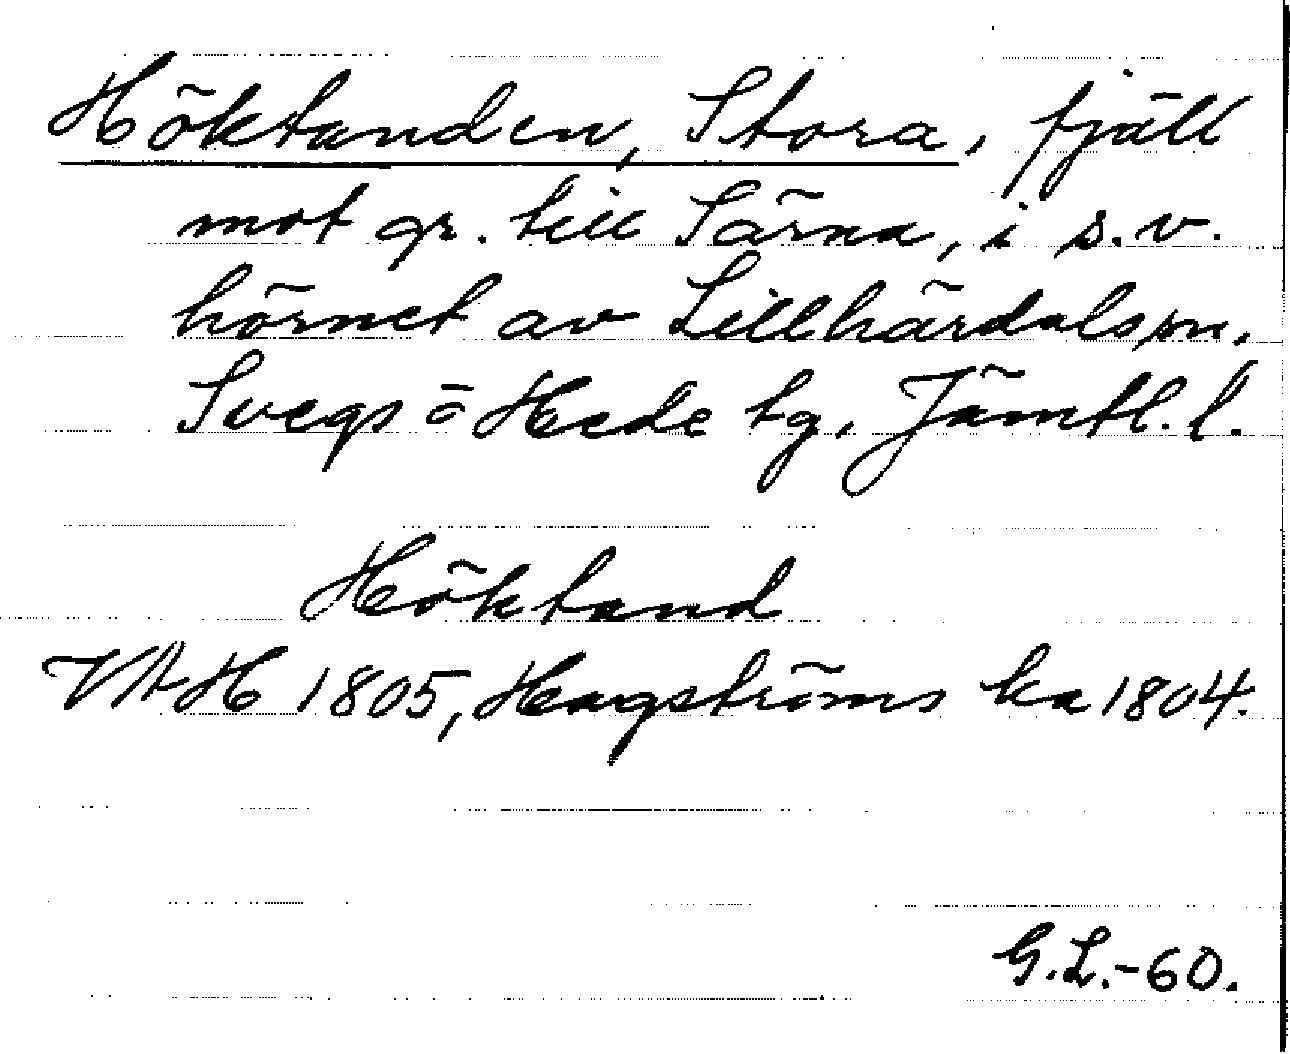 Höktanden, Stora, fjäll
mot gr. till Särna, i s.v.
hörnet av Lillhärdals sn.
Svegs o Hede tg, Jämtl. l.
Höktand
VAH 1805, Hagströms ka 1804.
G.L.-60.